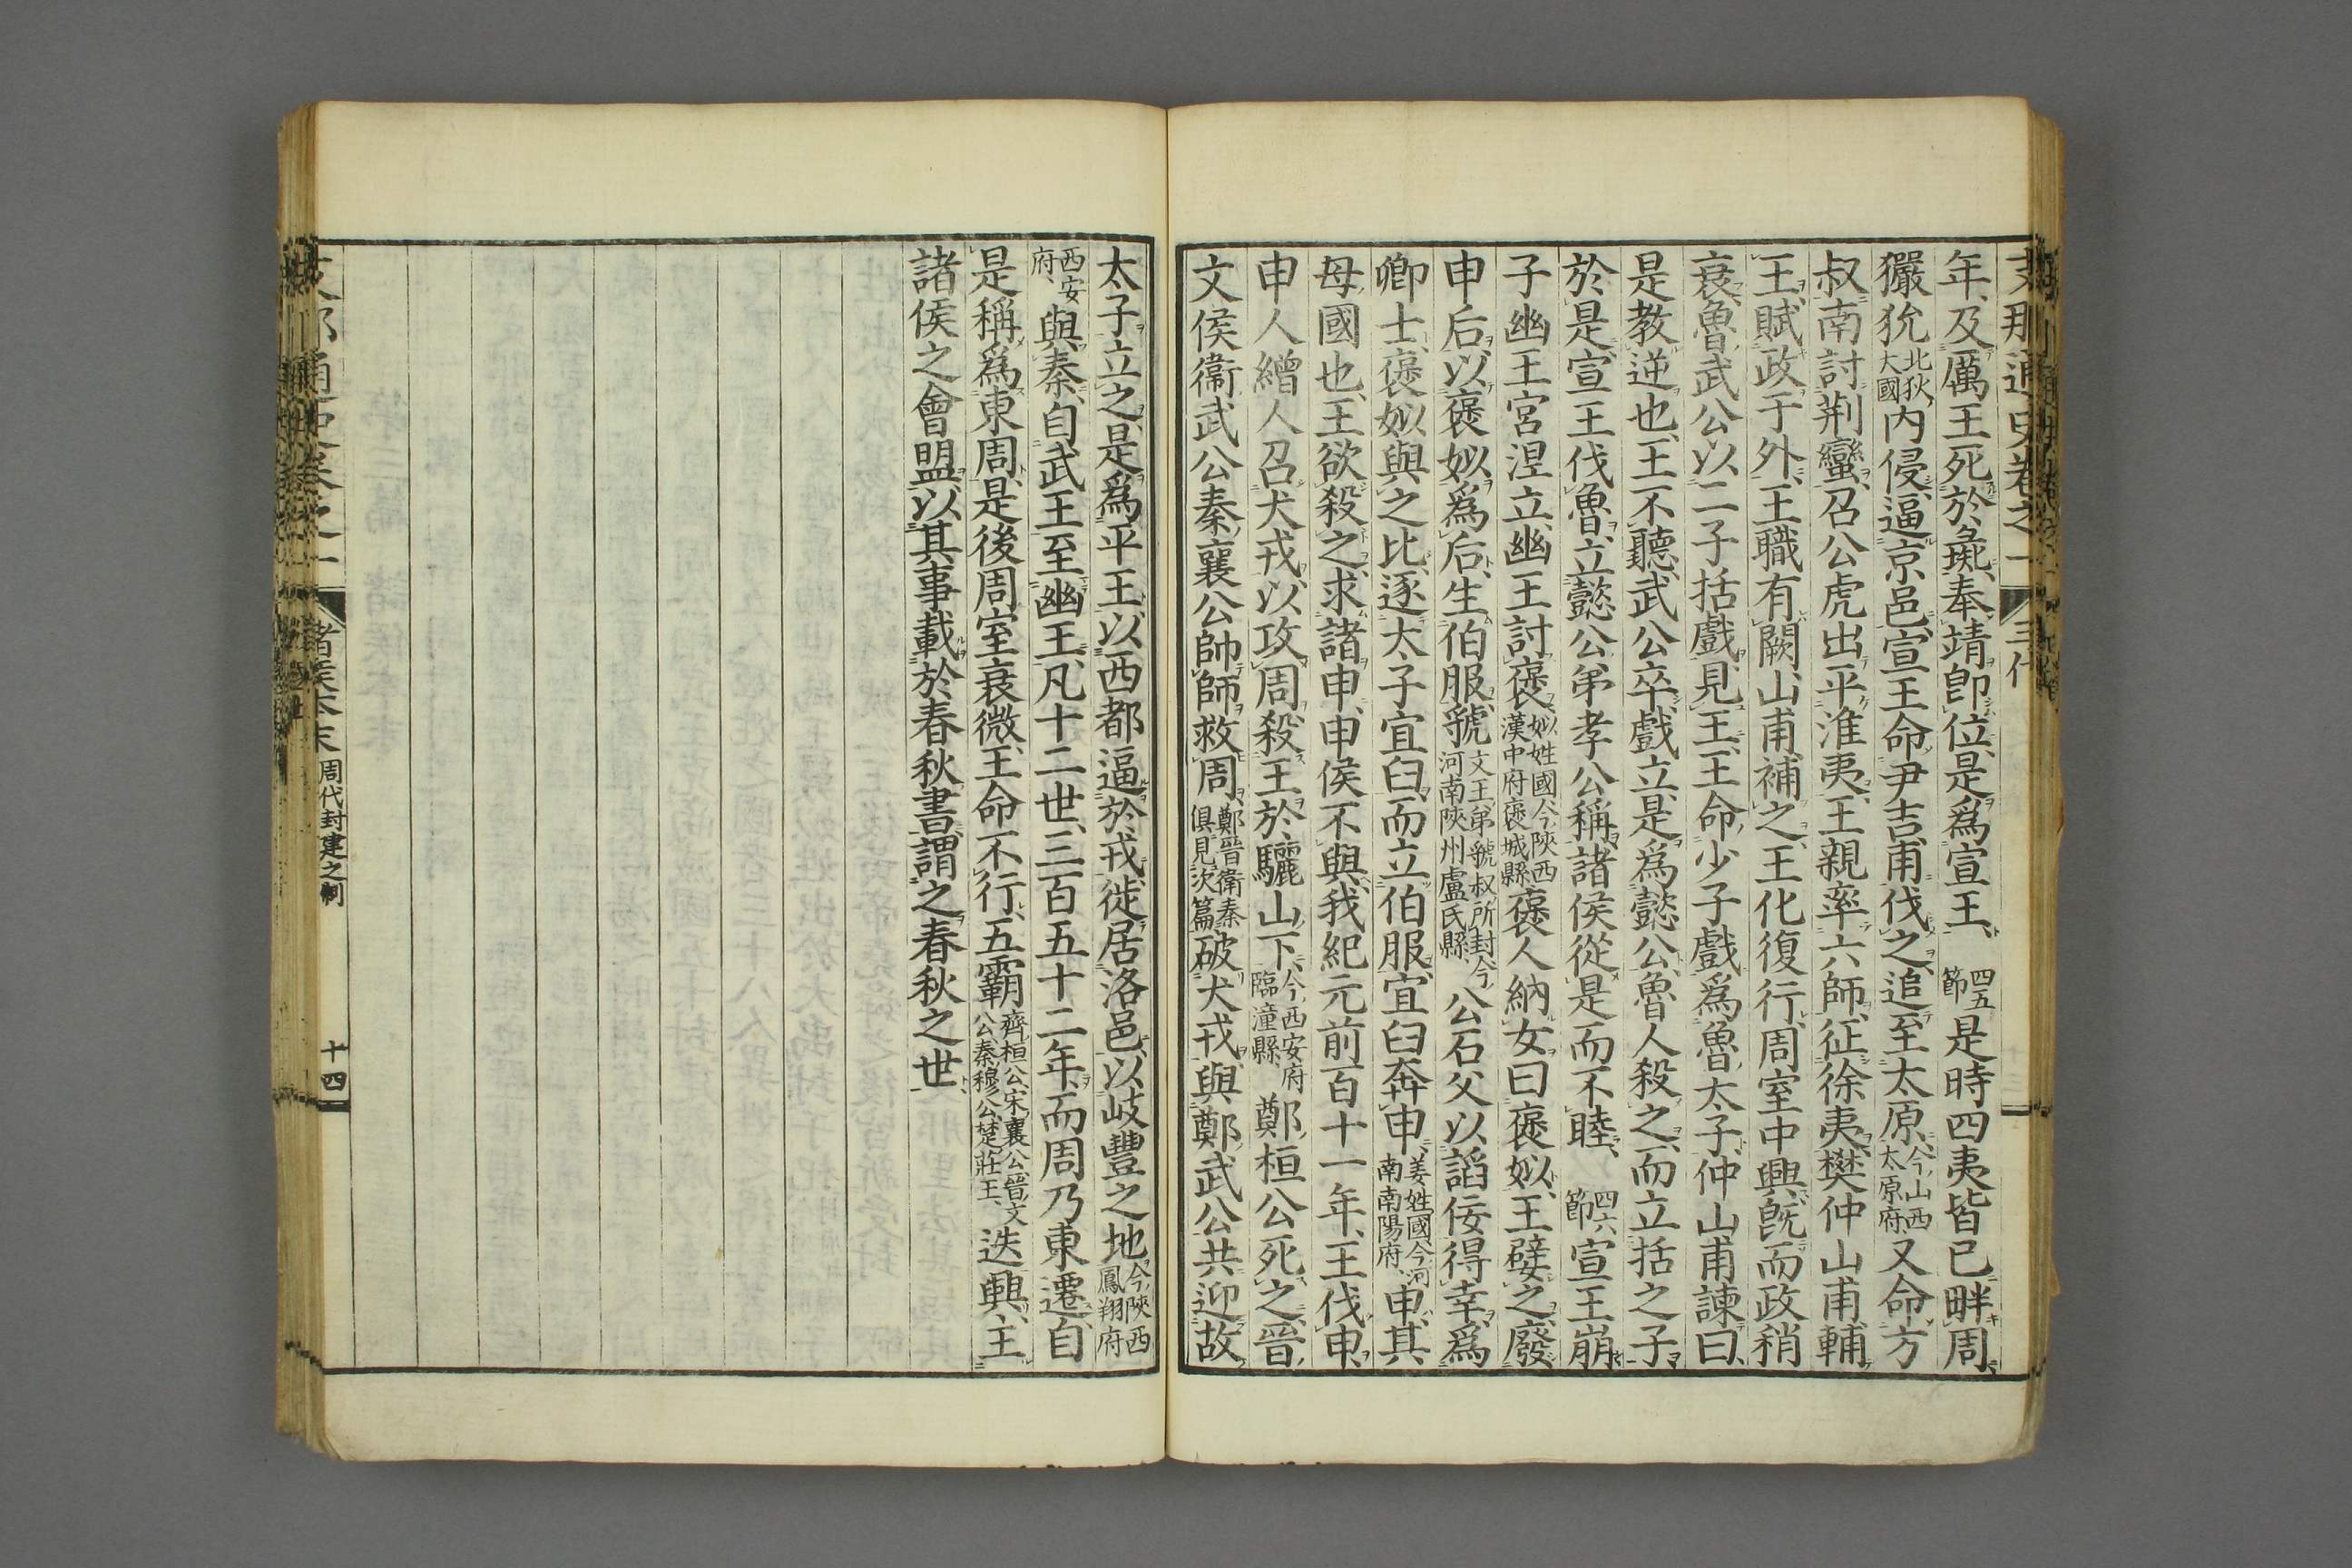 支那通史卷之一 三代
年、及厲王死於彘、奉靖卽位、是爲宣王、四五節是時四夷皆已畔周、
玁狁北狄大國內侵、逼京邑、宣王命尹吉甫伐之、追至太原、今山西太原府又命方
叔南討荆蠻、召公虎出平淮夷、王親率六師、征徐夷、樊仲山甫輔
王、賦政于外、王職有闕、山甫補之、王化復行、周室中興、旣而政稍
衰、魯武公以二子括戲見王、王命少子戲爲魯太子、仲山甫諫曰、
是教逆也、王不聽、武公卒、戲立、是爲懿公、魯人殺之、而立括之子、
於是宣王伐魯、立懿公弟孝公稱、諸侯從是而不睦、四六節宣王崩、
子幽王宮涅立、幽王討褒、姒姓國、今陝西漢中府褒城縣褒人納女、曰褒姒、王嬖之、廢
申后、以褒姒爲后、生伯服、虢文王弟虢叔所封、今河南陝州盧氏縣、公石父以謟佞得幸、爲
卿士、褒姒與之比、逐太子宜臼、而立伯服、宜臼奔申、姜姓國、今河南南陽府、申其
母國也、王欲殺之、求諸申、申侯不與、我紀元前百十一年、王伐申、
申人繒人召犬戎、以攻周、殺王於驪山下、今西安府臨潼縣、鄭桓公死之、晉
文侯衞武公秦襄公帥師救周、鄭晉衛秦俱見次篇破犬戎、與鄭武公共迎故
太子立之、是爲平王、以西都逼於戎、徙居洛邑、以岐豐之地、今陝西鳳翔府
西安府、與秦、自武王至幽王、凡十二世、三百五十二年、而周乃東遷、自
是稱爲東周、是後周室衰微、王命不行、五霸齊桓公、宋襄公、晉文公、秦穆公、楚莊王、迭興、主
諸侯之會盟、以其事載於春秋書、謂之春秋之世、
諸侯本末 周代封建之制 十四